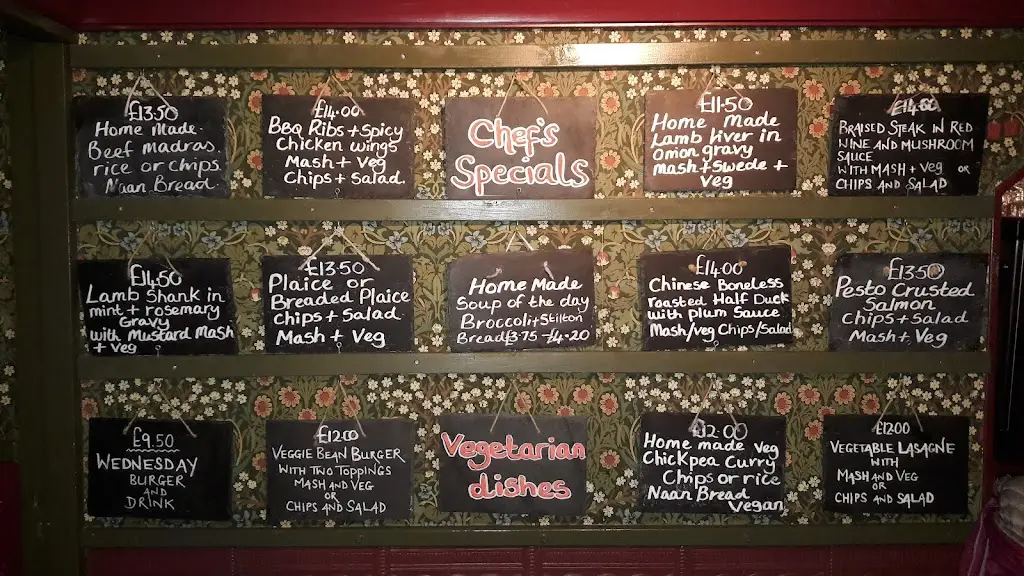 £13.50
Home Made.
Beef madras.
rice or chips.
Naan Bread
£14.00
BBQ Ribs + Spicy
Chicken wings
Mash + Veg
Chips + Salad.
Chef's
Specials
£11.50
Home Made
Lamb liver in
onion gravy
mash + Swede +
Veg
£14.00
BRAISED STEAK IN RED
WINE AND MUSHROOM
SAUCE
WITH MASH + VEG OR
CHIPS AND SALAD
£14.50
Lamb Shank in
mint + rosemary
Gravy
with Mustard Mash
+ Veg
£13.50
Plaice or
Breaded Plaice
Chips + Salad.
Mash + Veg
Home Made
Soup of the day
Broccoli + Stilton
Bread £3.75 - £4.20
£14.00
Chinese Boneless
roasted Half Duck
with plum Sauce
Mash/veg Chips/Salad
£13.50
Pesto Crusted
Salmon
Chips + Salad
Mash + Veg
£9.50
WEDNESDAY
BURGER
AND
DRINK
£12.00
VEGGIE BEAN BURGER
WITH TWO TOPPINGS
MASH AND VEG
OR
CHIPS AND SALAD
Vegetarian
dishes
£12.00
Home made Veg
Chickpea Curry
Chips or rice
Naan Bread
Vegan
£12.00
VEGETABLE LASAGNE
WITH
MASH AND VEG
OR
CHIPS AND SALAD